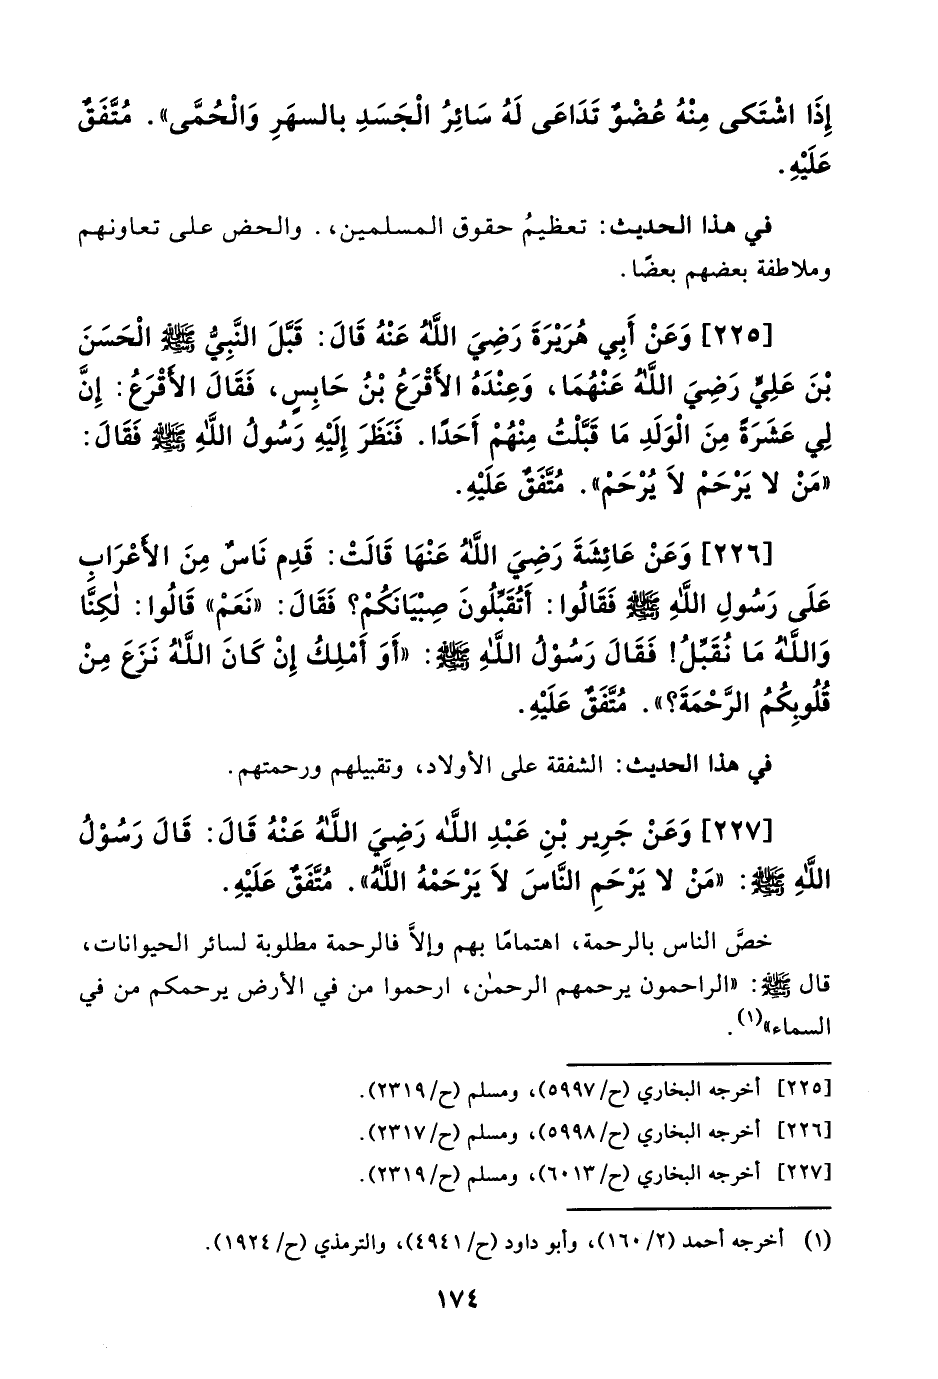 إِذَا اشْتَكى مِنْهُ عُضْوٌ تَدَاعَى لَهُ سَائِرُ الْجَسَدِ بالسهَرِ وَالْحُمَّى». مُتَّفَقٌ
عَلَيْهِ.
في هذا الحديث: تعظيمُ حقوق المسلمين،. والحض على تعاونهم
وملاطفة بعضهم بعضًا.
[٢٢٥] وَعَنْ أَبِي هُرَيْرَةَ رَضِيَ اللَّهُ عَنْهُ قَالَ: قَبَّلَ النَّبِيُّ ﷺ الْحَسَنَ
بْنَ عَلِيٍّ رَضِيَ اللَّهُ عَنْهُمَا، وَعِنْدَهُ الأَقْرَعُ بْنُ حَابِسٍ، فَقَالَ الأَقْرَعُ: إِنَّ
لِي عَشَرَةً مِنَ الْوَلَدِ مَا قَبَّلْتُ مِنْهُمْ أَحَدًا. فَنَظَرَ إِلَيْهِ رَسُولُ اللَّهِ ﷺ فَقَالَ:
«مَنْ لا يَرْحَمْ لاَ يُرْحَمْ». مُتَّفَقٌ عَلَيْهِ.
[٢٢٦] وَعَنْ عَائِشَةَ رَضِيَ اللَّهُ عَنْهَا قَالَتْ: قَدِم نَاسٌ مِنَ الأَعْرَابِ
عَلَى رَسُولِ اللَّهِ ﷺ فَقَالُوا: أَتُقَبِّلُونَ صِبْيَانَكُمْ؟ فَقَالَ: «نَعَمْ» قَالُوا: لٰكِنَّا
وَاللَّهُ مَا نُقَبِّلُ! فَقَالَ رَسُوْلُ اللَّهِ ﷺ: «أَوَ أَمْلِكُ إِنْ كَانَ اللَّهُ نَزَعَ مِنْ
قُلُوبِكُمُ الرَّحْمَةَ؟». مُتَّفَقٌ عَلَيْهِ.
في هذا الحديث: الشفقة على الأولاد، وتقبيلهم ورحمتهم.
[٢٢٧] وَعَنْ جَرِير بْنِ عَبْدِ اللَّه رَضِيَ اللَّهُ عَنْهُ قَالَ: قَالَ رَسُوْلُ
اللَّهِ ﷺ: «مَنْ لا يَرْحَمِ النَّاسَ لاَ يَرْحَمْهُ اللَّهُ». مُتَّفَقٌ عَلَيْهِ.
خصَّ الناس بالرحمة، اهتمامًا بهم وإلاَّ فالرحمة مطلوبة لسائر الحيوانات،
قال ﷺ: «الراحمون يرحمهم الرحمٰن، ارحموا من في الأرض يرحمكم من في
السماء»(١).
[٢٢٥] أخرجه البخاري (ح/٥٩٩٧)، ومسلم (ح/٢٣١٩).
[٢٢٦] أخرجه البخاري (ح/٥٩٩٨)، ومسلم (ح/٢٣١٧).
[٢٢٧] أخرجه البخاري (ح/٦٠١٣)، ومسلم (ح/٢٣١٩).
(١) أخرجه أحمد (٢/١٦٠)، وأبو داود (ح/٤٩٤١)، والترمذي (ح/١٩٢٤).
١٧٤